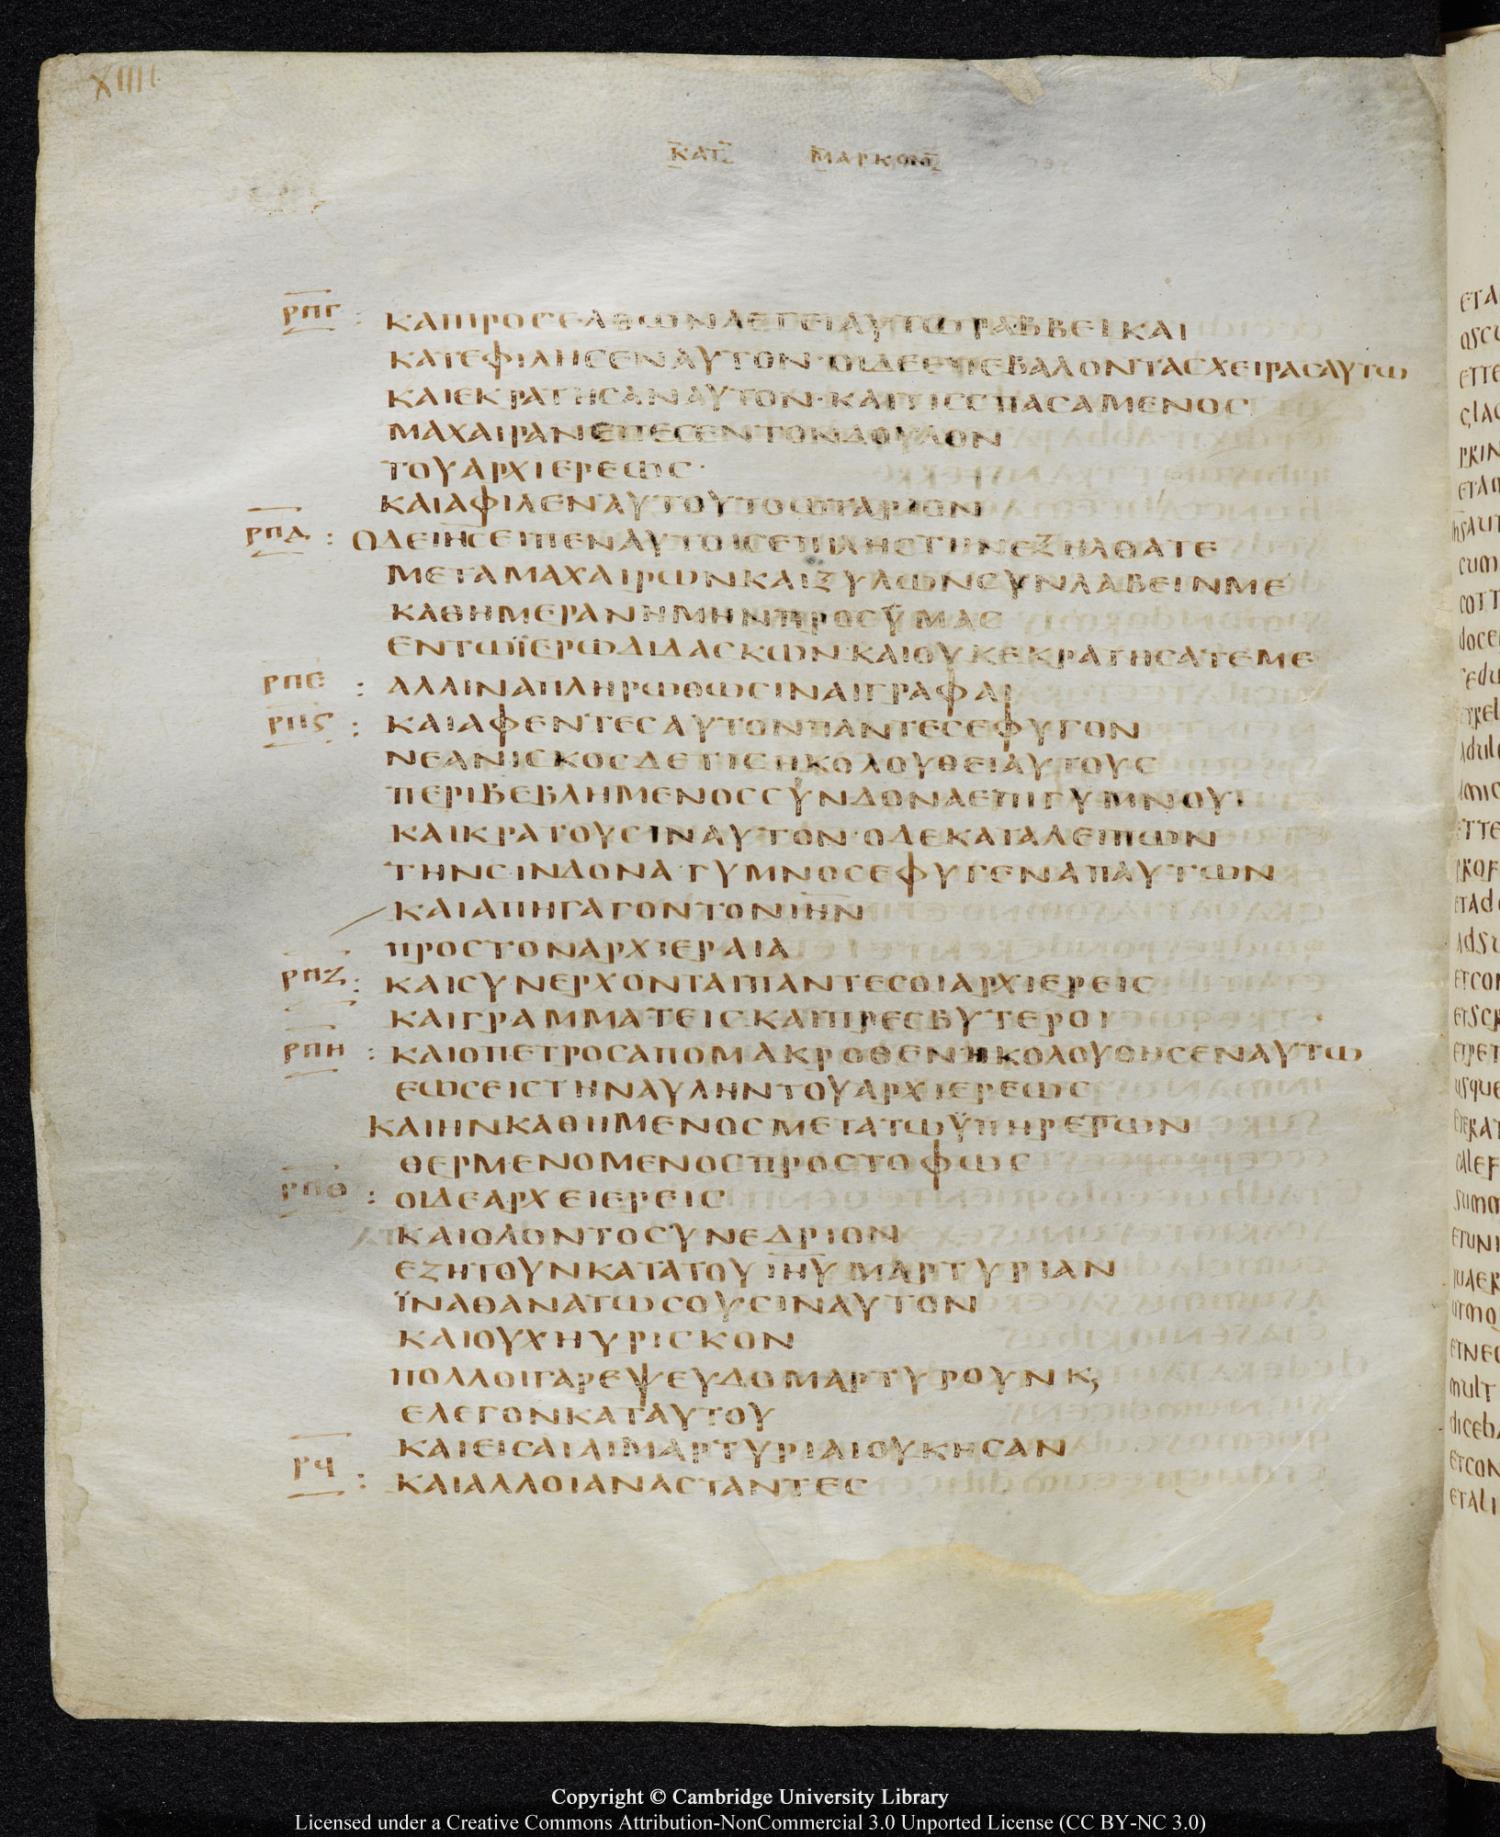 XIIII
ΚΑΤ ΜΑΡΚΟΝ
ΡΠΓ : ΚΑΙΠΡΟΣΕΛΘΩΝΛΕΓΕΙΑΥΤΩΡΑΒΒΕΙΚΑΙ
ΚΑΤΕΦΙΛΗΣΕΝΑΥΤΟΝ·ΟΙΔΕΕΠΕΒΑΛΟΝΤΑΣΧΕΙΡΑΣΑΥΤΩ
ΚΑΙΕΚΡΑΤΗΣΑΝΑΥΤΟΝ·ΚΑΙΤΙΣΣΠΑΣΑΜΕΝΟΣ
ΜΑΧΑΙΡΑΝΕΠΕΣΕΝΤΟΝΔΟΥΛΟΝ
ΤΟΥΑΡΧΙΕΡΕΩΣ·
ΚΑΙΑΦΙΛΕΝΑΥΤΟΥΤΟΩΤΑΡΙΟΝ
ΡΠΔ : ΟΔΕΙΗΣΕΙΠΕΝΑΥΤΟΙΣΕΠΙΛΗΣΤΗΝΕΞΗΛΘΑΤΕ
ΜΕΤΑΜΑΧΑΙΡΩΝΚΑΙΞΥΛΩΝΣΥΝΛΑΒΕΙΝΜΕ
ΚΑΘΗΜΕΡΑΝΗΜΗΝΠΡΟΣΫΜΑΣ
ΕΝΤΩΪΕΡΩΔΙΔΑΣΚΩΝ·ΚΑΙΟΥΚΕΚΡΑΤΗΣΑΤΕΜΕ
ΡΠΕ : ΑΛΛΙΝΑΠΛΗΡΩΘΩΣΙΝΑΙΓΡΑΦΑΙ
ΡΠϚ : ΚΑΙΑΦΕΝΤΕΣΑΥΤΟΝΠΑΝΤΕΣΕΦΥΓΟΝ
ΝΕΑΝΙΣΚΟΣΔΕΤΙΣΗΚΟΛΟΥΘΕΙΑΥΤΟΥΣ
ΠΕΡΙΒΕΒΛΗΜΕΝΟΣΣΥΝΔΟΝΑΕΠΙΓΥΜΝΟΥ
ΚΑΙΚΡΑΤΟΥΣΙΝΑΥΤΟΝ·ΟΔΕΚΑΤΑΛΕΙΠΩΝ
ΤΗΝΣΙΝΔΟΝΑ·ΓΥΜΝΟΣΕΦΥΓΕΝΑΠΑΥΤΩΝ
ΚΑΙΑΠΗΓΑΓΟΝΤΟΝΙΗΝ
ΠΡΟΣΤΟΝΑΡΧΙΕΡΑΙΑ
ΡΠΖ : ΚΑΙΣΥΝΕΡΧΟΝΤΑΙΠΑΝΤΕΣΟΙΑΡΧΙΕΡΕΙΣ
ΚΑΙΓΡΑΜΜΑΤΕΙΣ·ΚΑΙΠΡΕΣΒΥΤΕΡΟΙ
ΡΠΗ : ΚΑΙΟΠΕΤΡΟΣΑΠΟΜΑΚΡΟΘΕΝΗΚΟΛΟΥΘΗΣΕΝΑΥΤΩ
ΕΩΣΕΙΣΤΗΝΑΥΛΗΝΤΟΥΑΡΧΙΕΡΕΩΣ
ΚΑΙΗΝΚΑΘΗΜΕΝΟΣΜΕΤΑΤΩΫΠΗΡΕΤΩΝ
ΘΕΡΜΕΝΟΜΕΝΟΣΠΡΟΣΤΟΦΩΣ
ΡΠΘ : ΟΙΔΕΑΡΧΕΙΕΡΕΙΣ
ΚΑΙΟΛΟΝΤΟΣΥΝΕΔΡΙΟΝ
ΕΖΗΤΟΥΝΚΑΤΑΤΟΥΙΗΥΜΑΡΤΥΡΙΑΝ
ΪΝΑΘΑΝΑΤΩΣΟΥΣΙΝΑΥΤΟΝ
ΚΑΙΟΥΧΗΥΡΙΣΚΟΝ
ΠΟΛΛΟΙΓΑΡΕΨΕΥΔΟΜΑΡΤΥΡΟΥΝΚ,
ΕΛΕΓΟΝΚΑΤΑΥΤΟΥ
ΚΑΙΕΙΣΑΙΑΙΜΑΡΤΥΡΙΑΙΟΥΚΗΣΑΝ
ΡϞ : ΚΑΙΑΛΛΟΙΑΝΑΣΤΑΝΤΕΣ
Copyright © Cambridge University Library
Licensed under a Creative Commons Attribution-NonCommercial 3.0 Unported License (CC BY-NC 3.0)